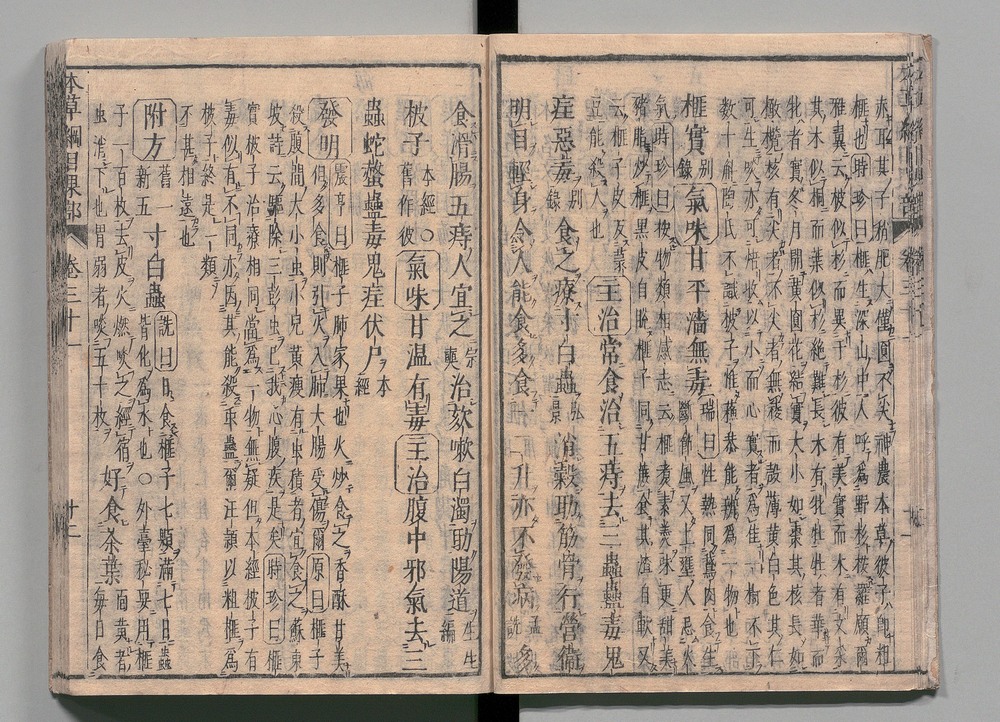 赤耳其子稍肥大僅圓不尖神農本草彼子即粗
榧也時珍曰榧生深山中人呼為野杉按羅願爾
雅翼云柀似杉而異于杉彼有美實而木有文采
其木似桐而葉似杉絶難長木有牝牡牡者華而
牝者實冬月開黄圓花結實大小如棗其核長如
橄欖核有尖者不尖者無稜而殼薄黄白色其仁
可生啖亦可焙收以小而心實者為佳一樹不下
數十斛陶氏不識柀子惟蘇恭能辨為一物也
榧實別錄氣味甘平濇無毒瑞曰性熱同鵝肉食生斷節風又上壅人忌火
氣時珍曰按物類相感志云榧煮素羹味更甜美
豬脂炒榧黑皮自脫榧子同甘蔗食其渣自軟又
云榧子皮反菉豆能殺人也主治常食治五痔去三蟲蠱毒鬼
疰惡毒別錄食之療寸白蟲弘景消穀助筋骨行營衛
明目輕身令人能食多食一二升亦不發病孟詵多
食滑腸五痔人宜之宗奭治欬嗽白濁助陽道生生編
柀子本經○舊作彼氣味甘温有毒主治腹中邪氣去三
蟲蛇螫蠱毒鬼疰伏尸本經
發明震亨曰榧子肺家果也火炒食之香酥甘美
但多食則引火入肺大腸受傷爾原曰榧子
殺腹間大小虫小兒黄瘦有虫積者宜食之蘇東
坡詩云驅除三彭虫已我心腹疾是矣時珍曰
實柀子治療相同當為一物無疑但本經柀子有
毒似有不同亦因其能殺乖蠱爾汪頴以粗榧為
柀子終是一類
不甚相遠也
附方舊一新五寸白蟲詵曰日食榧子七顆滿七日蟲
皆化為水也○外臺秘要用榧
子一百枚去皮火燃啖之經宿
虫消下也胃弱者啖五十枚好食茶葉面黄者
每日食
本草綱目果部
卷三十一
廿二